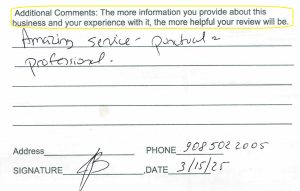 Additional Comments: The more information you provide about this
business and your experience with it, the more helpful your review will be.
Amazing service - punctual &
professional.
Address
PHONE 9085022005
SIGNATURE ,DATE 3/15/25